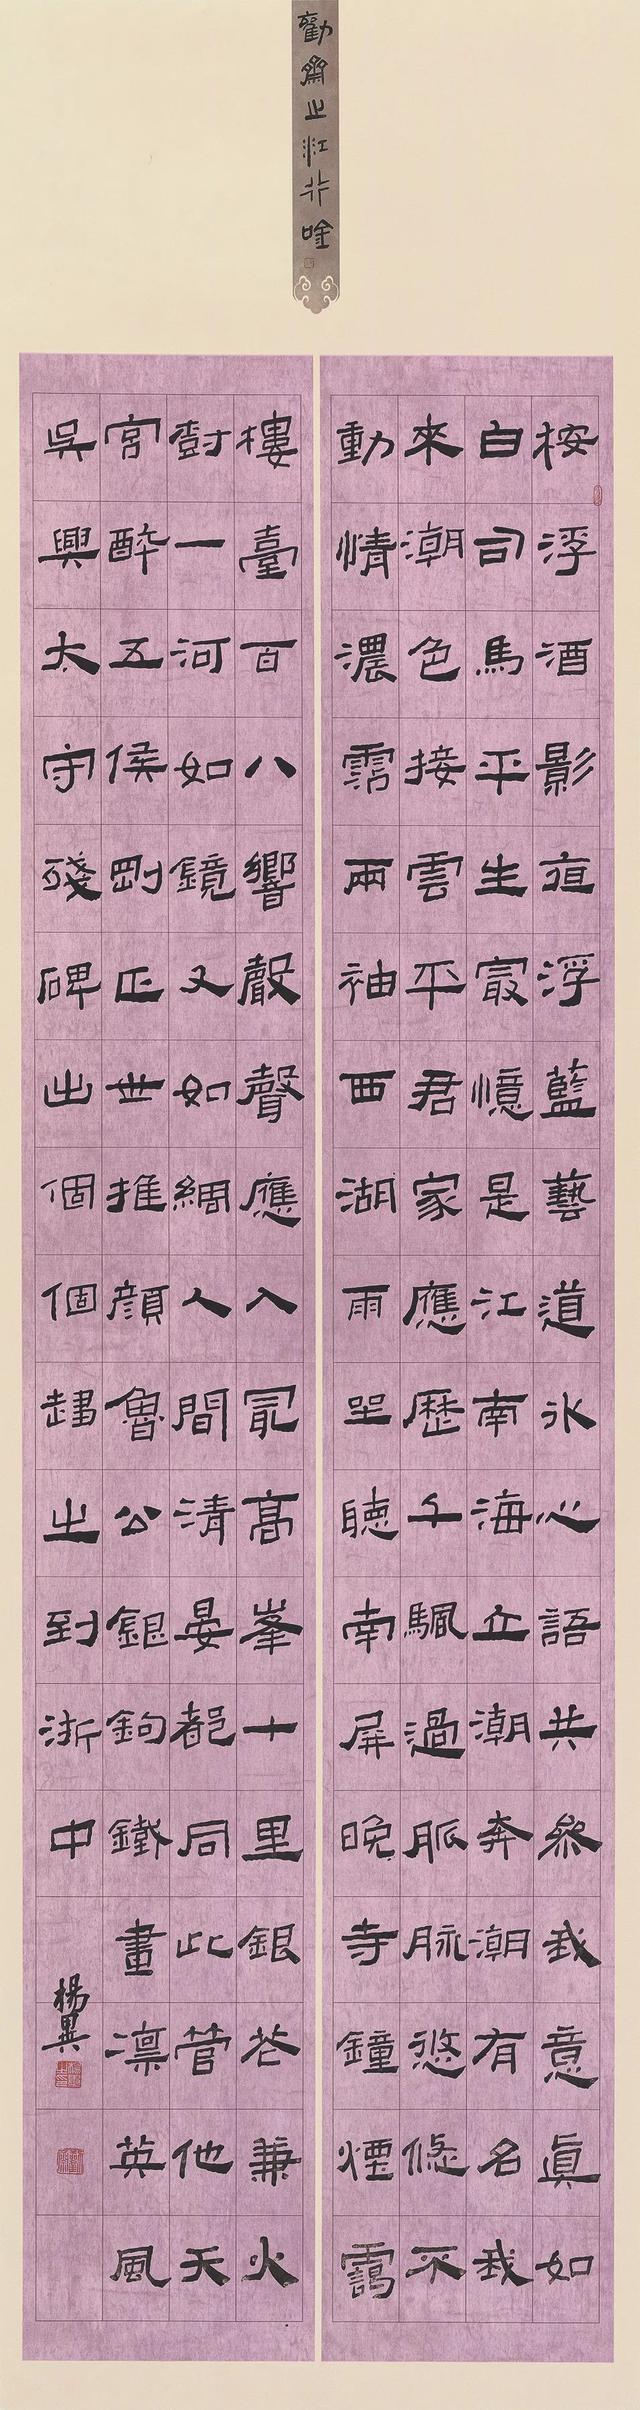 勸齋之江行唫
桉浮酒影夜浮藍藝道冰心語共參我意眞如
白司馬平生冣憶是江南海立潮奔潮有名我
來潮色接雲平君家應歷千颿過脈脈悠悠不
動情濃霑兩袖西湖雨坐聽南屏晚寺鐘煙靄
樓臺百八響聲聲應入冣高峯十里銀花兼火
樹一河如鏡又如綢人間清晏都同此管他天
宮醉五侯剛正世推顏魯公銀鉤鐵畫凜英風
吳興太守殘碑出個個趨之到浙中
楊異